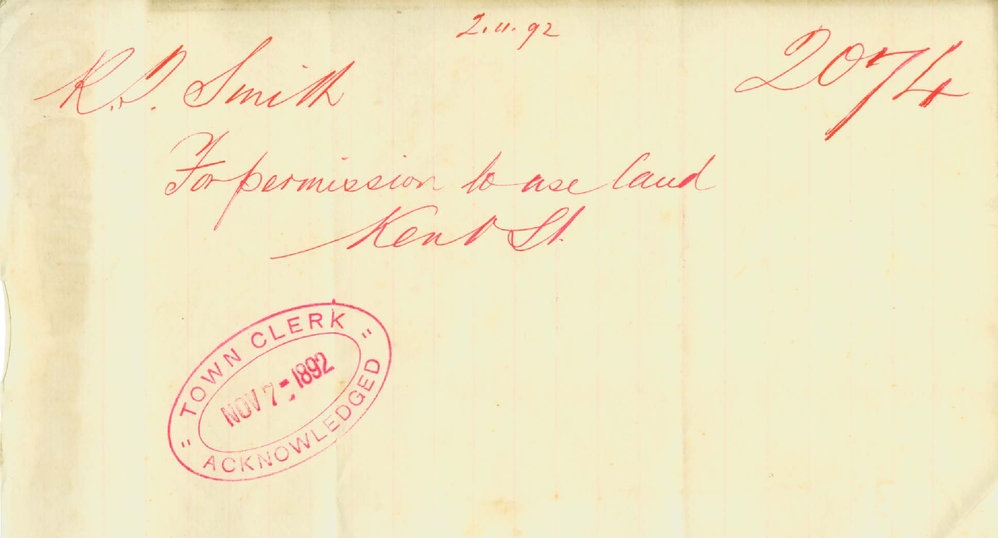 2.11.92
2074
R. D. Smith
For permission to use land
Kent St.
TOWN CLERK
NOV 7 - 1892
ACKNOWLEDGED